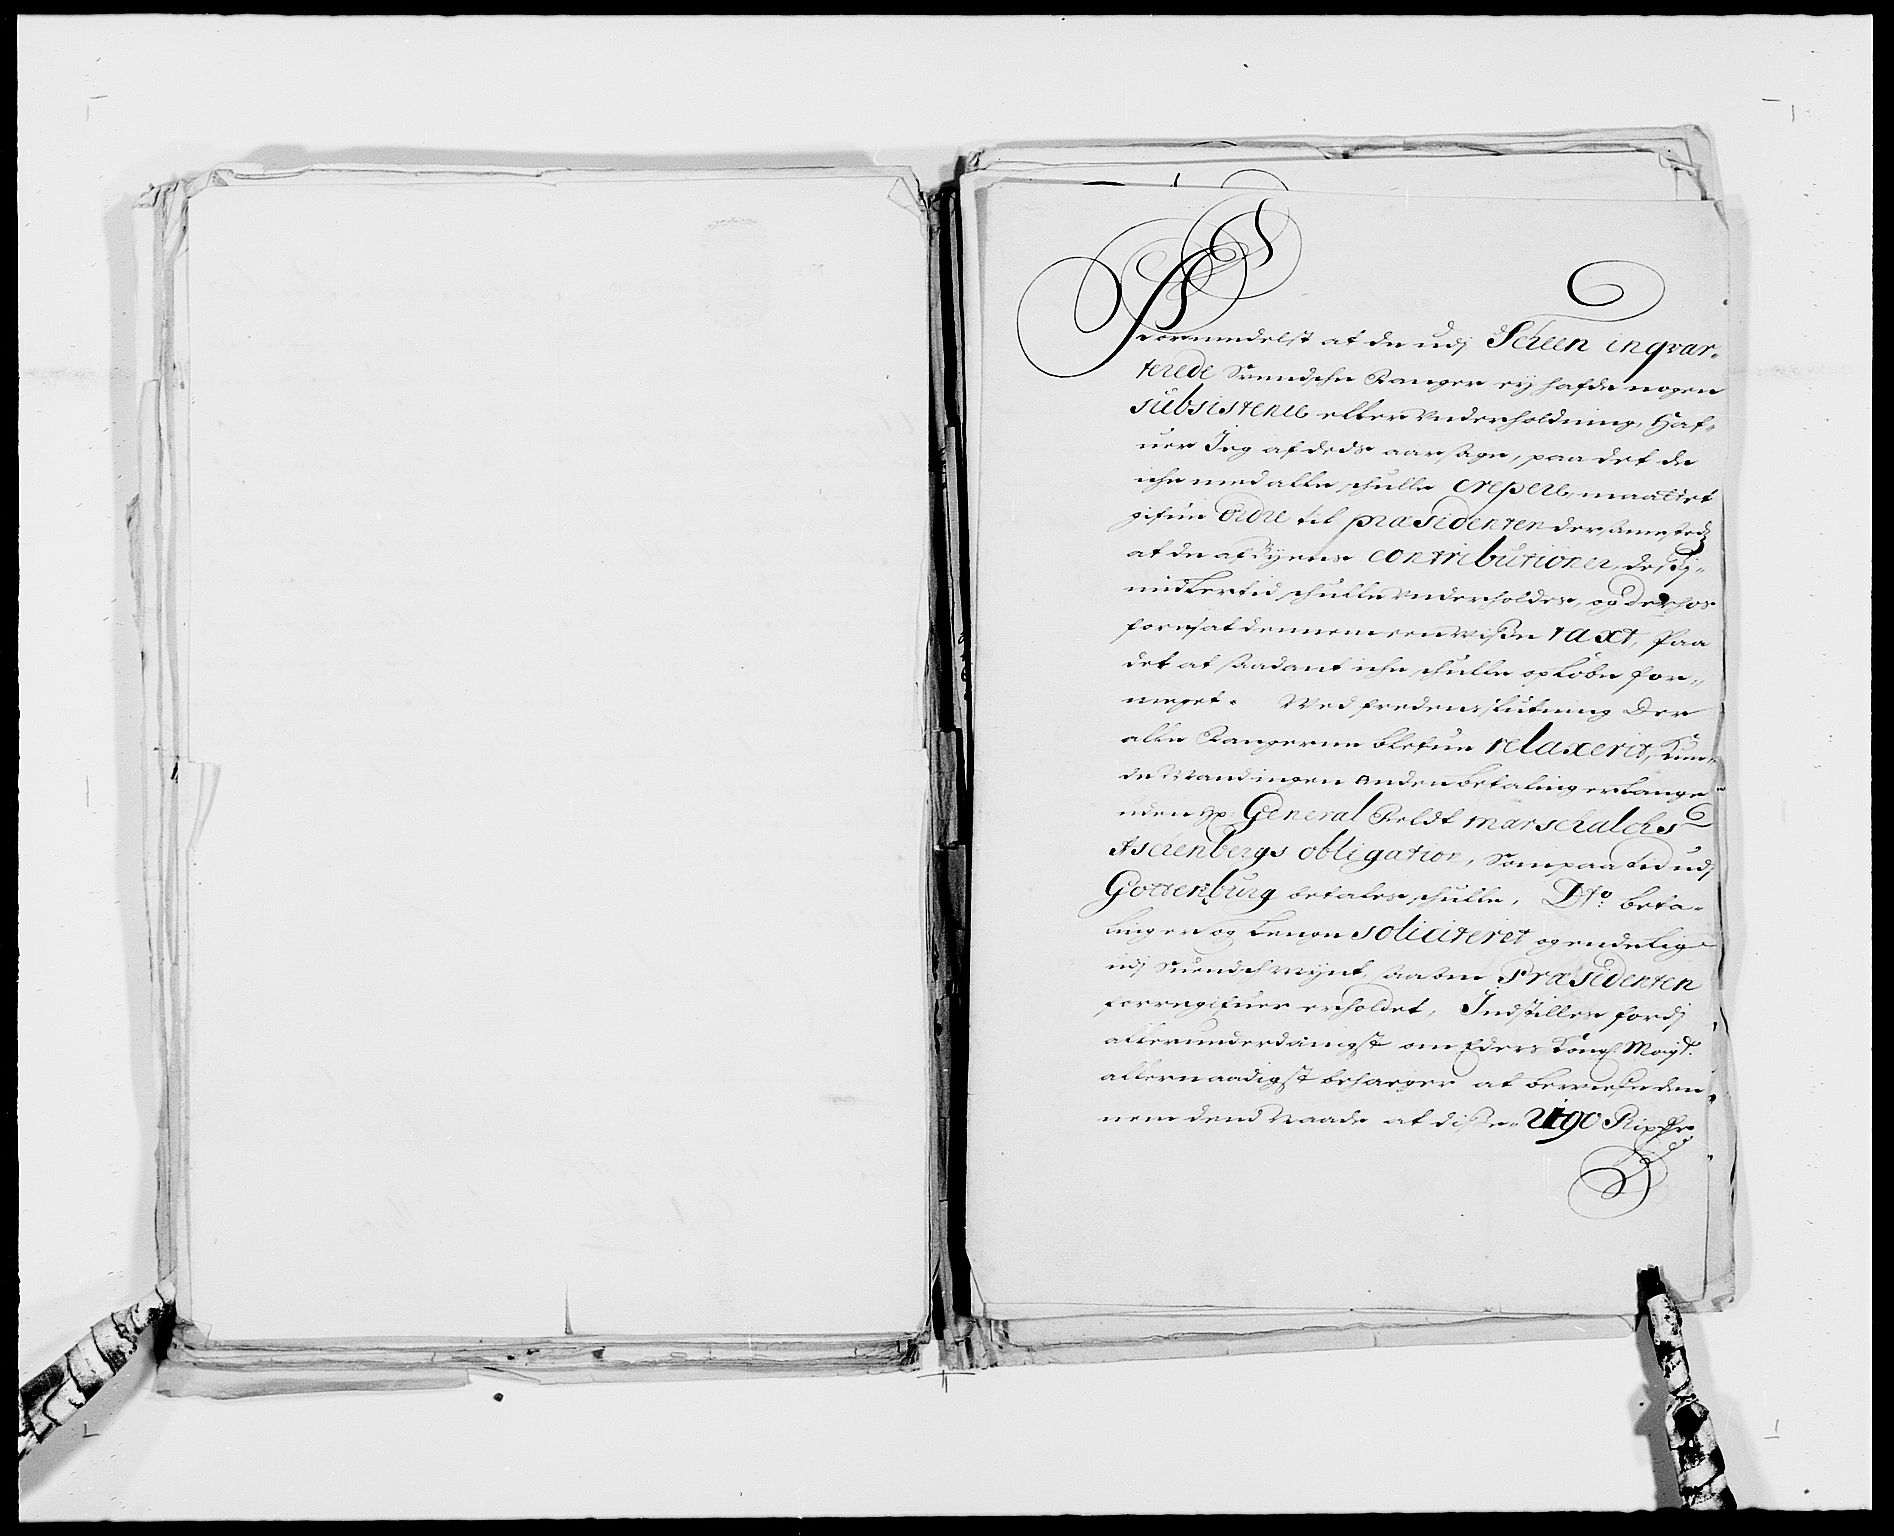 Formedelst at de udj Scheen inqvar-
terede Svendsche Fanger ey hafde nogen
subsistence eller Underholdning, Haf-
uer Jeg af deds aarsage, paa det de
iche med alle schulle crepere, maattet
gifue ordre til præsidenten der sammesteds
at de af Byens contributioner, des J-
midlertid schulle Underholdes, og derhos
forresat dennem een Wisse taxt, Paa
det at saadant iche schulle opløbe for-
meget. Wed fredens slutning Der
alle Fangerne blefue relaxerit, Kun-
de Mand ingen anden betaling erlange
uden Hr: General Feldt marschalchs
Aschenbergs obligation, Som paa tid udj
Gottenburg betales schulle, Dto: beta-
linger og lenge soliciteret og endelig
udj Suendsch Mynt, saa som Præsidenten
forregifuer erholdet, Indstilles fordj
allerunderdanigst om Eders Kongl. Mayt.
allernaadigst behager at bewise den-
nem dend Naade at disse 2190 Rixdlr